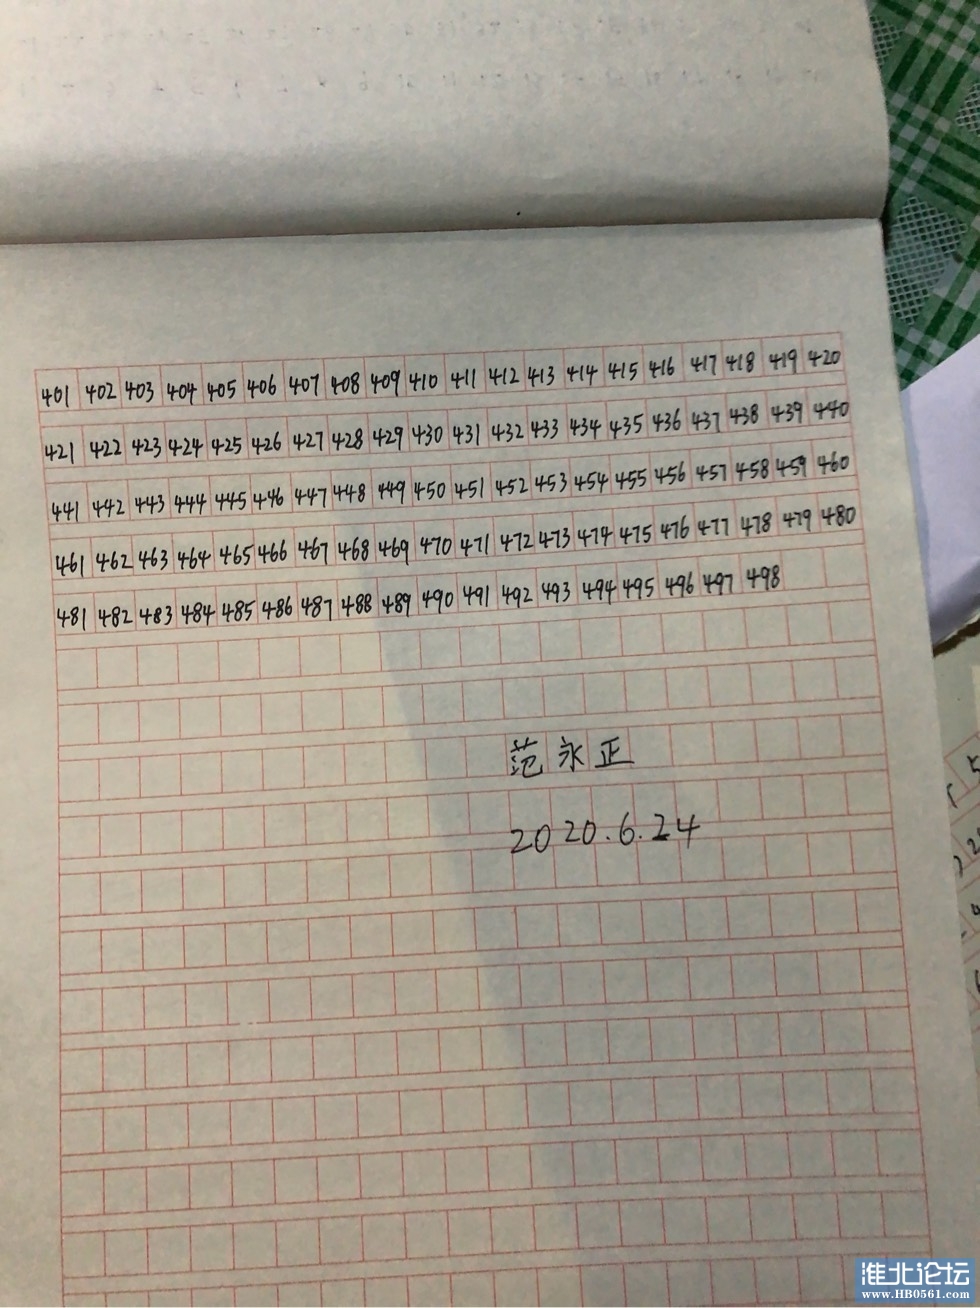 401 402 403 404 405 406 407 408 409 410 411 412 413 414 415 416 417 418 419 420
421 422 423 424 425 426 427 428 429 430 431 432 433 434 435 436 437 438 439 440
441 442 443 444 445 446 447 448 449 450 451 452 453 454 455 456 457 458 459 460
461 462 463 464 465 466 467 468 469 470 471 472 473 474 475 476 477 478 479 480
481 482 483 484 485 486 487 488 489 490 491 492 493 494 495 496 497 498
范永正
2020.6.24
淮北论坛
www.HB0561.com